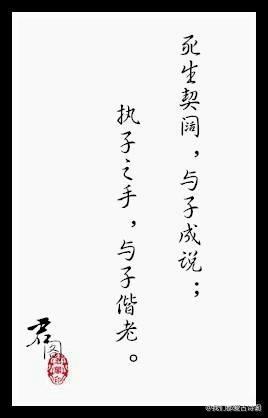 死生契阔，与子成说；
执子之手，与子偕老。
君阁
@我们都爱古诗词